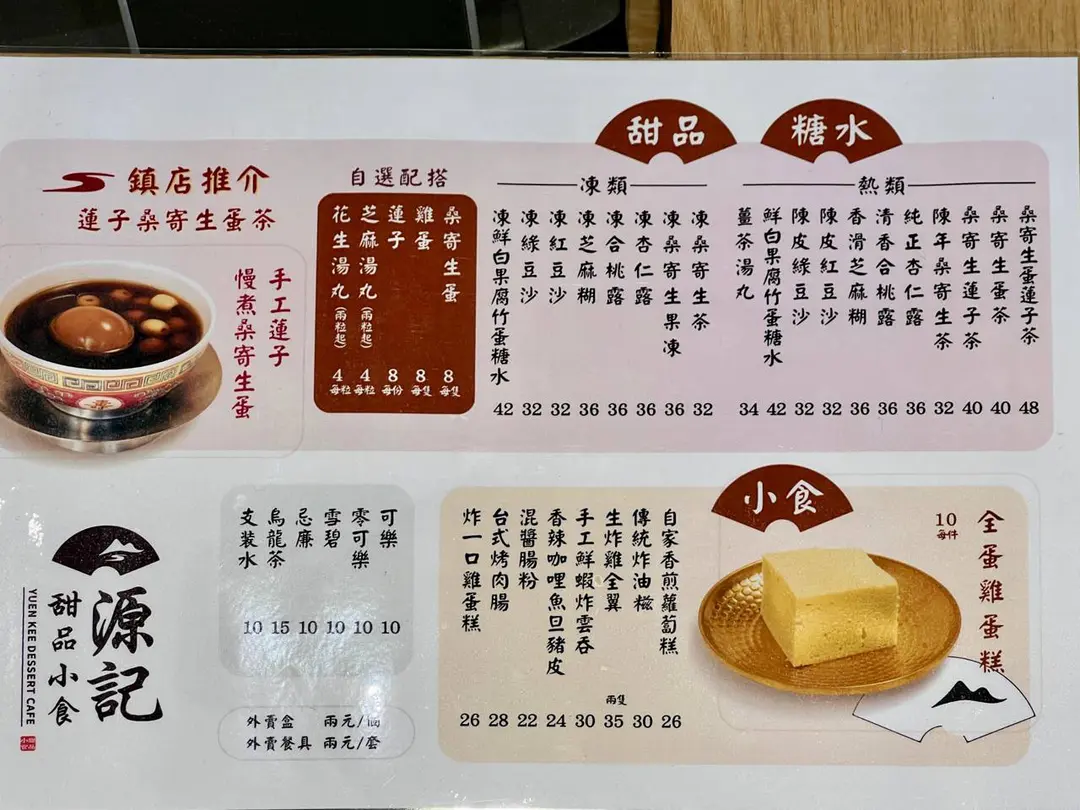 甜品
糖水
熱類
桑寄生蛋蓮子茶
48
桑寄生蛋茶
40
桑寄生蓮子茶
40
陳年桑寄生茶
32
純正杏仁露
36
清香合桃露
36
香滑芝麻糊
36
陳皮紅豆沙
32
陳皮綠豆沙
32
鮮白果腐竹蛋糖水
42
薑茶湯丸
34
凍類
凍桑寄生茶
32
凍桑寄生果凍
36
凍杏仁露
36
凍合桃露
36
凍芝麻糊
36
凍紅豆沙
32
凍綠豆沙
32
凍鮮白果腐竹蛋糖水
42
自選配搭
桑寄生蛋
8
每隻
雞蛋
8
每隻
蓮子
8
每份
芝麻湯丸(兩粒起)
4
每粒
花生湯丸(兩粒起)
4
每粒
鎮店推介
蓮子桑寄生蛋茶
手工蓮子
慢煮桑寄生蛋
小食
全蛋雞蛋糕
10
每件
自家香煎蘿蔔糕
26
傳統炸油糍
30
生炸雞全翼
兩隻
35
手工鮮蝦炸雲吞
30
香辣咖哩魚旦豬皮
24
混醬腸粉
22
台式烤肉腸
28
炸一口雞蛋糕
26
可樂
10
零可樂
10
雪碧
10
忌廉
10
烏龍茶
15
支裝水
10
外賣盒 兩元/個
外賣餐具 兩元/套
源記
甜品小食
YUEN KEE DESSERT CAFE